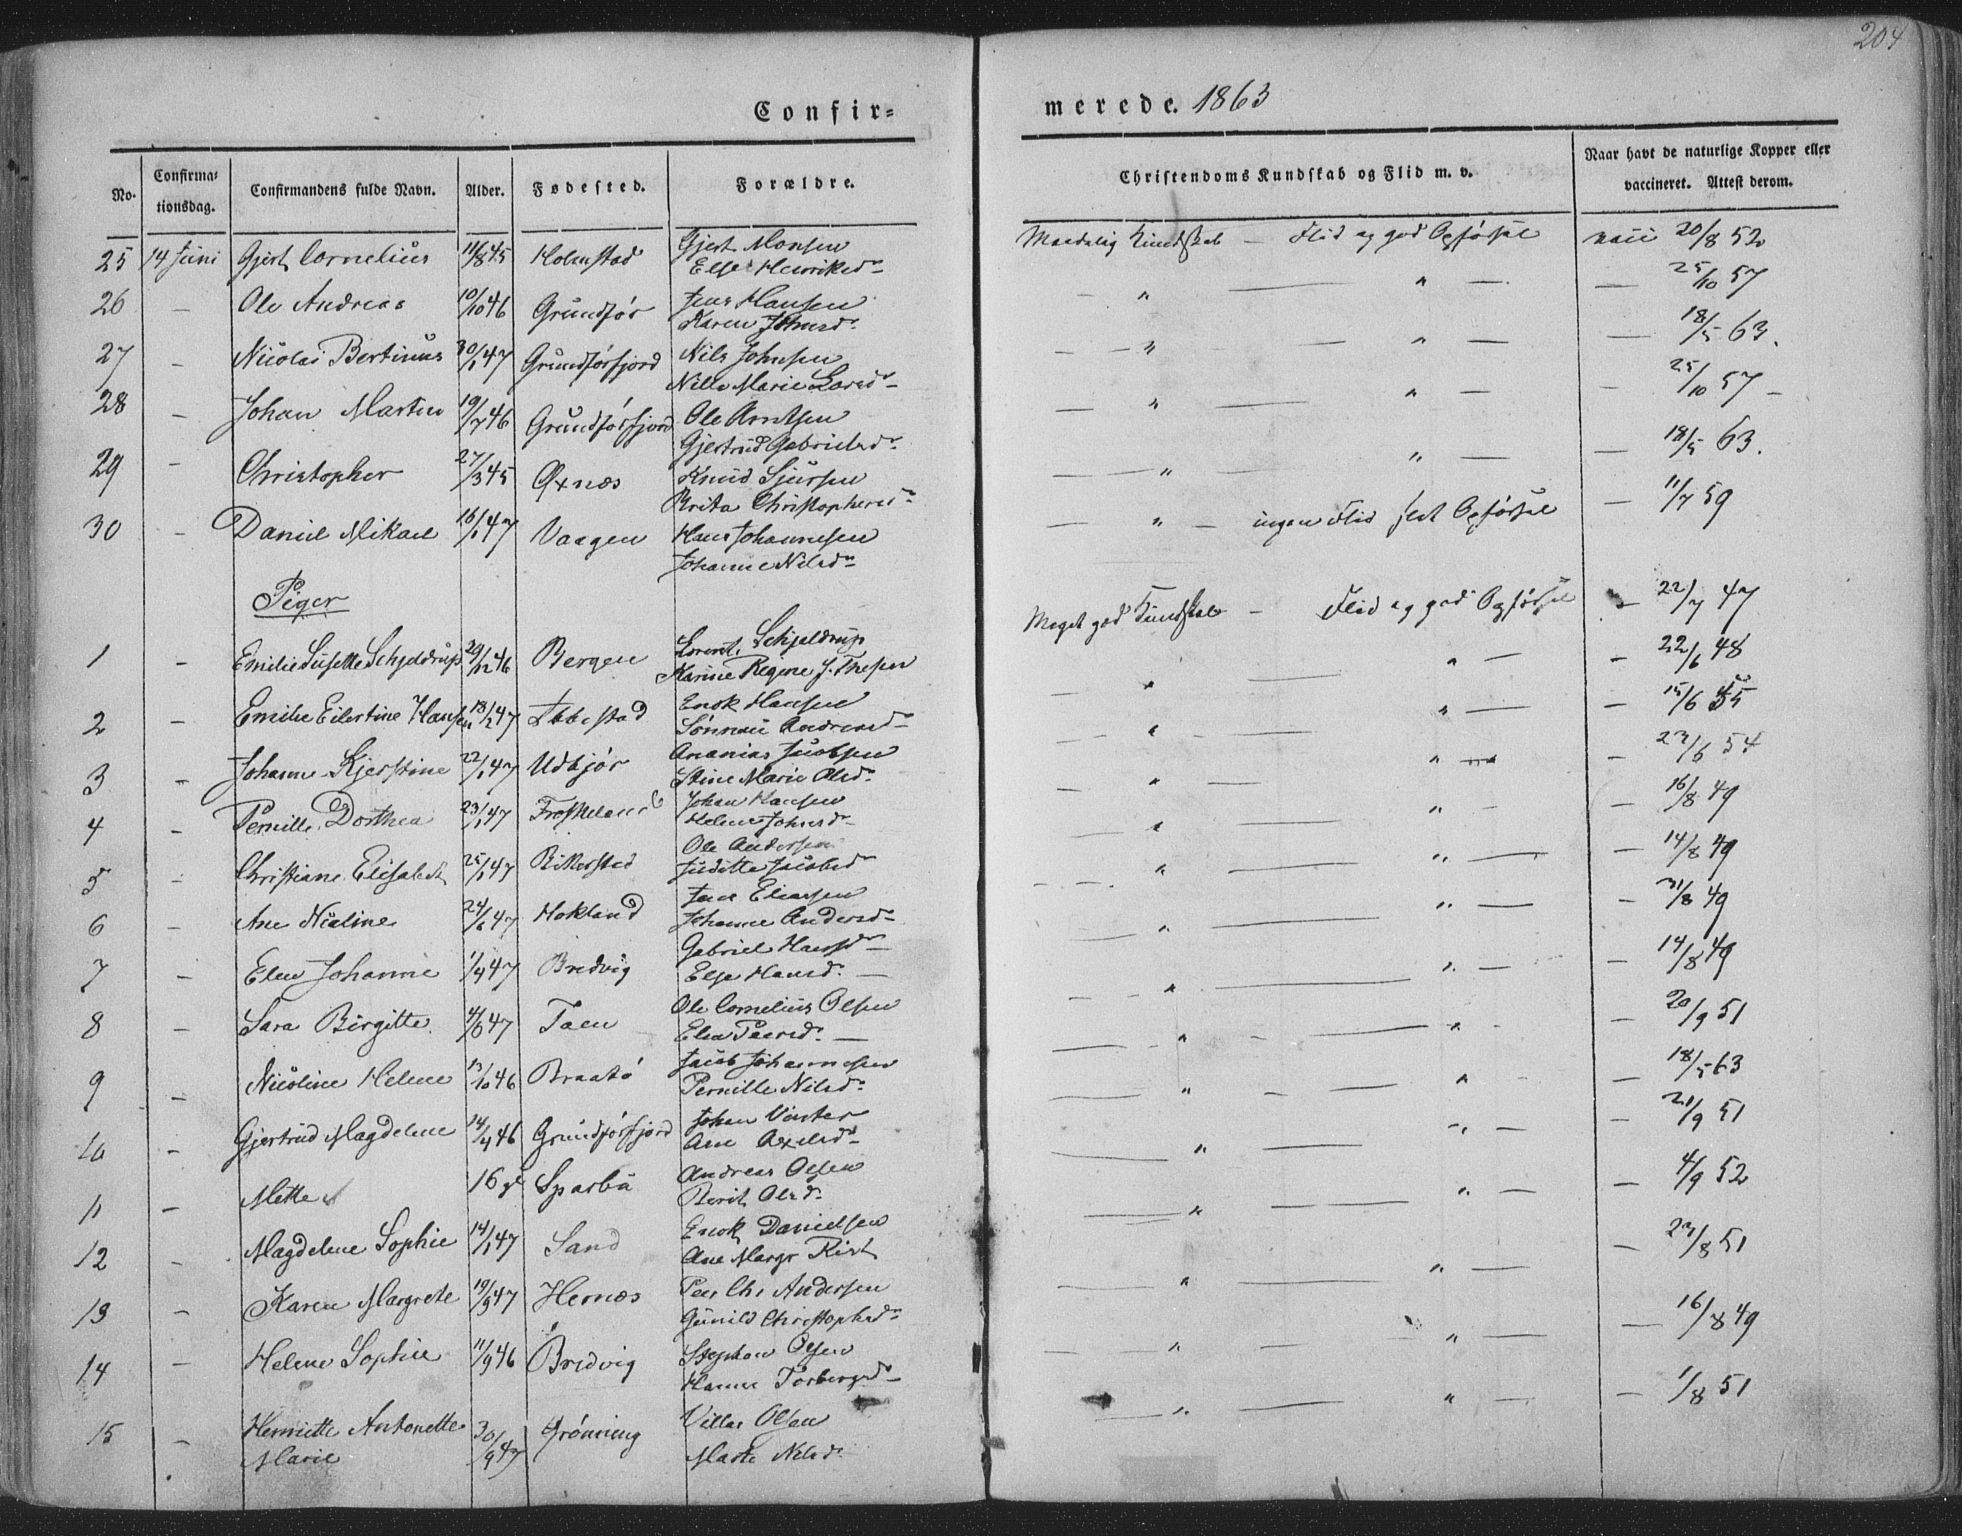 204
Confir=
merede. 1863
No.
Confirma=
tionsdag.
Confirmandens fulde Navn.
Alder.
Fødested.
Forældre.
Christendoms Kundskab og Flid m. v.
Naar havt de naturlige Kopper eller
vaccineret. Attest derom.
25 14 Juni Gjert Cornelius 11/8 45 Holmstad Gjert Monsen Maadelig Kundskab — Flid og god Opførsel vacc 20/8 52
Else Henriksd.
26 — Ole Andreas 10/10 46 Grundfør Jens Hansen — " — " — — 25/10 57
Karen Johnsd.
27 — Nicolai Bertinus 30/1 47 Grundførfjord Nils Johnsen — — " — " — — 18/5 63.
Nille Marie Larsd.
28 — Johan Martin 19/7 46 Grundførfjord Ole Arntsen — " — " — — 25/10 57 —
Gjertrud Gabrielsd.
29 — Christopher 27/3 45 Øxnæs Knud Sjursen — " — " — — 18/5 63.
Brita Christophersd.
30 — Daniel Mikael 16/1 47 Vaagen Hans Johannesen — " — ingen Flid slet Opførsel — 11/7 59
Johanne Nilsd.
Piger
1 — Emilie Susette Schjeldrup 29/12 46 Bergen Lorent. Schjeldrup Meget god Kundskab — Flid og god Opførsel — 22/7 47
Karine Regine J. Thesen
2 — Emilie Eilertine Hansen 18/2 47 Ebbestad Enok Hansen " — " — — 22/6 48
Sønnau Andreasd.
3 — Johanne Kjerstine 22/1 47 Udbjør Ananias Jacobsen — " — " — — 15/6 55
Stine Marie Olsd.
4 — Pernille Dorthea 23/1 47 Froskeland Johan Hansen — " — " — — 27/6 54
Helene Johnsd.
5 — Christiane Elisabeth 25/1 47 Rikersted Ole Andersen — " — " — 16/8 49
Juditte Jacobsd
6 — Ane Nicoline 24/6 47 Hokland Jens Eliassen — " — " — — 14/8 49
Johanne Andersd.
7 — Elen Johanne 1/4 47 Bredvig Gabriel Hansd. — " — " — — 31/8 49
Else Hansd. —
8 — Sara Birgitte 4/10 47 Taen Ole Cornelius Olsen — " — " — — 14/8 49
Elen Peersd. —
9 — Nicoline Helene 13/10 46 Braatø Jacob Johannesen — " — " — 20/9 51
Pernille Nilsd.
10 — Gjertrud Magdelene 14/4 46 Grundførfjord Johan Vinter — " — " — — 18/5 63
Ane Axelsd.
11 — Mette 16 Sparbu Andreas Olsen — " — " — — 21/9 51
Berit Olsd.
12 — Magdelene Sophie 14/1 47 Sand Enok Danielsen — " — " — — 4/9 52
Ane Margr Rist
13 — Karen Margrete 19/9 47 Hernæs Peer Chr Andersen — " — " — — 27/8 51
Gunild Christophersd.
14 — Helene Sophie 11/9 46 Bredvig Stephan Olsen — " — " — — 16/8 49
Hanne Torbergsd.
15 — Henriette Antonette 30/9 47 Grønning Villas Olsen — " — " — — 1/8 51
Marie Marte Nilsd.